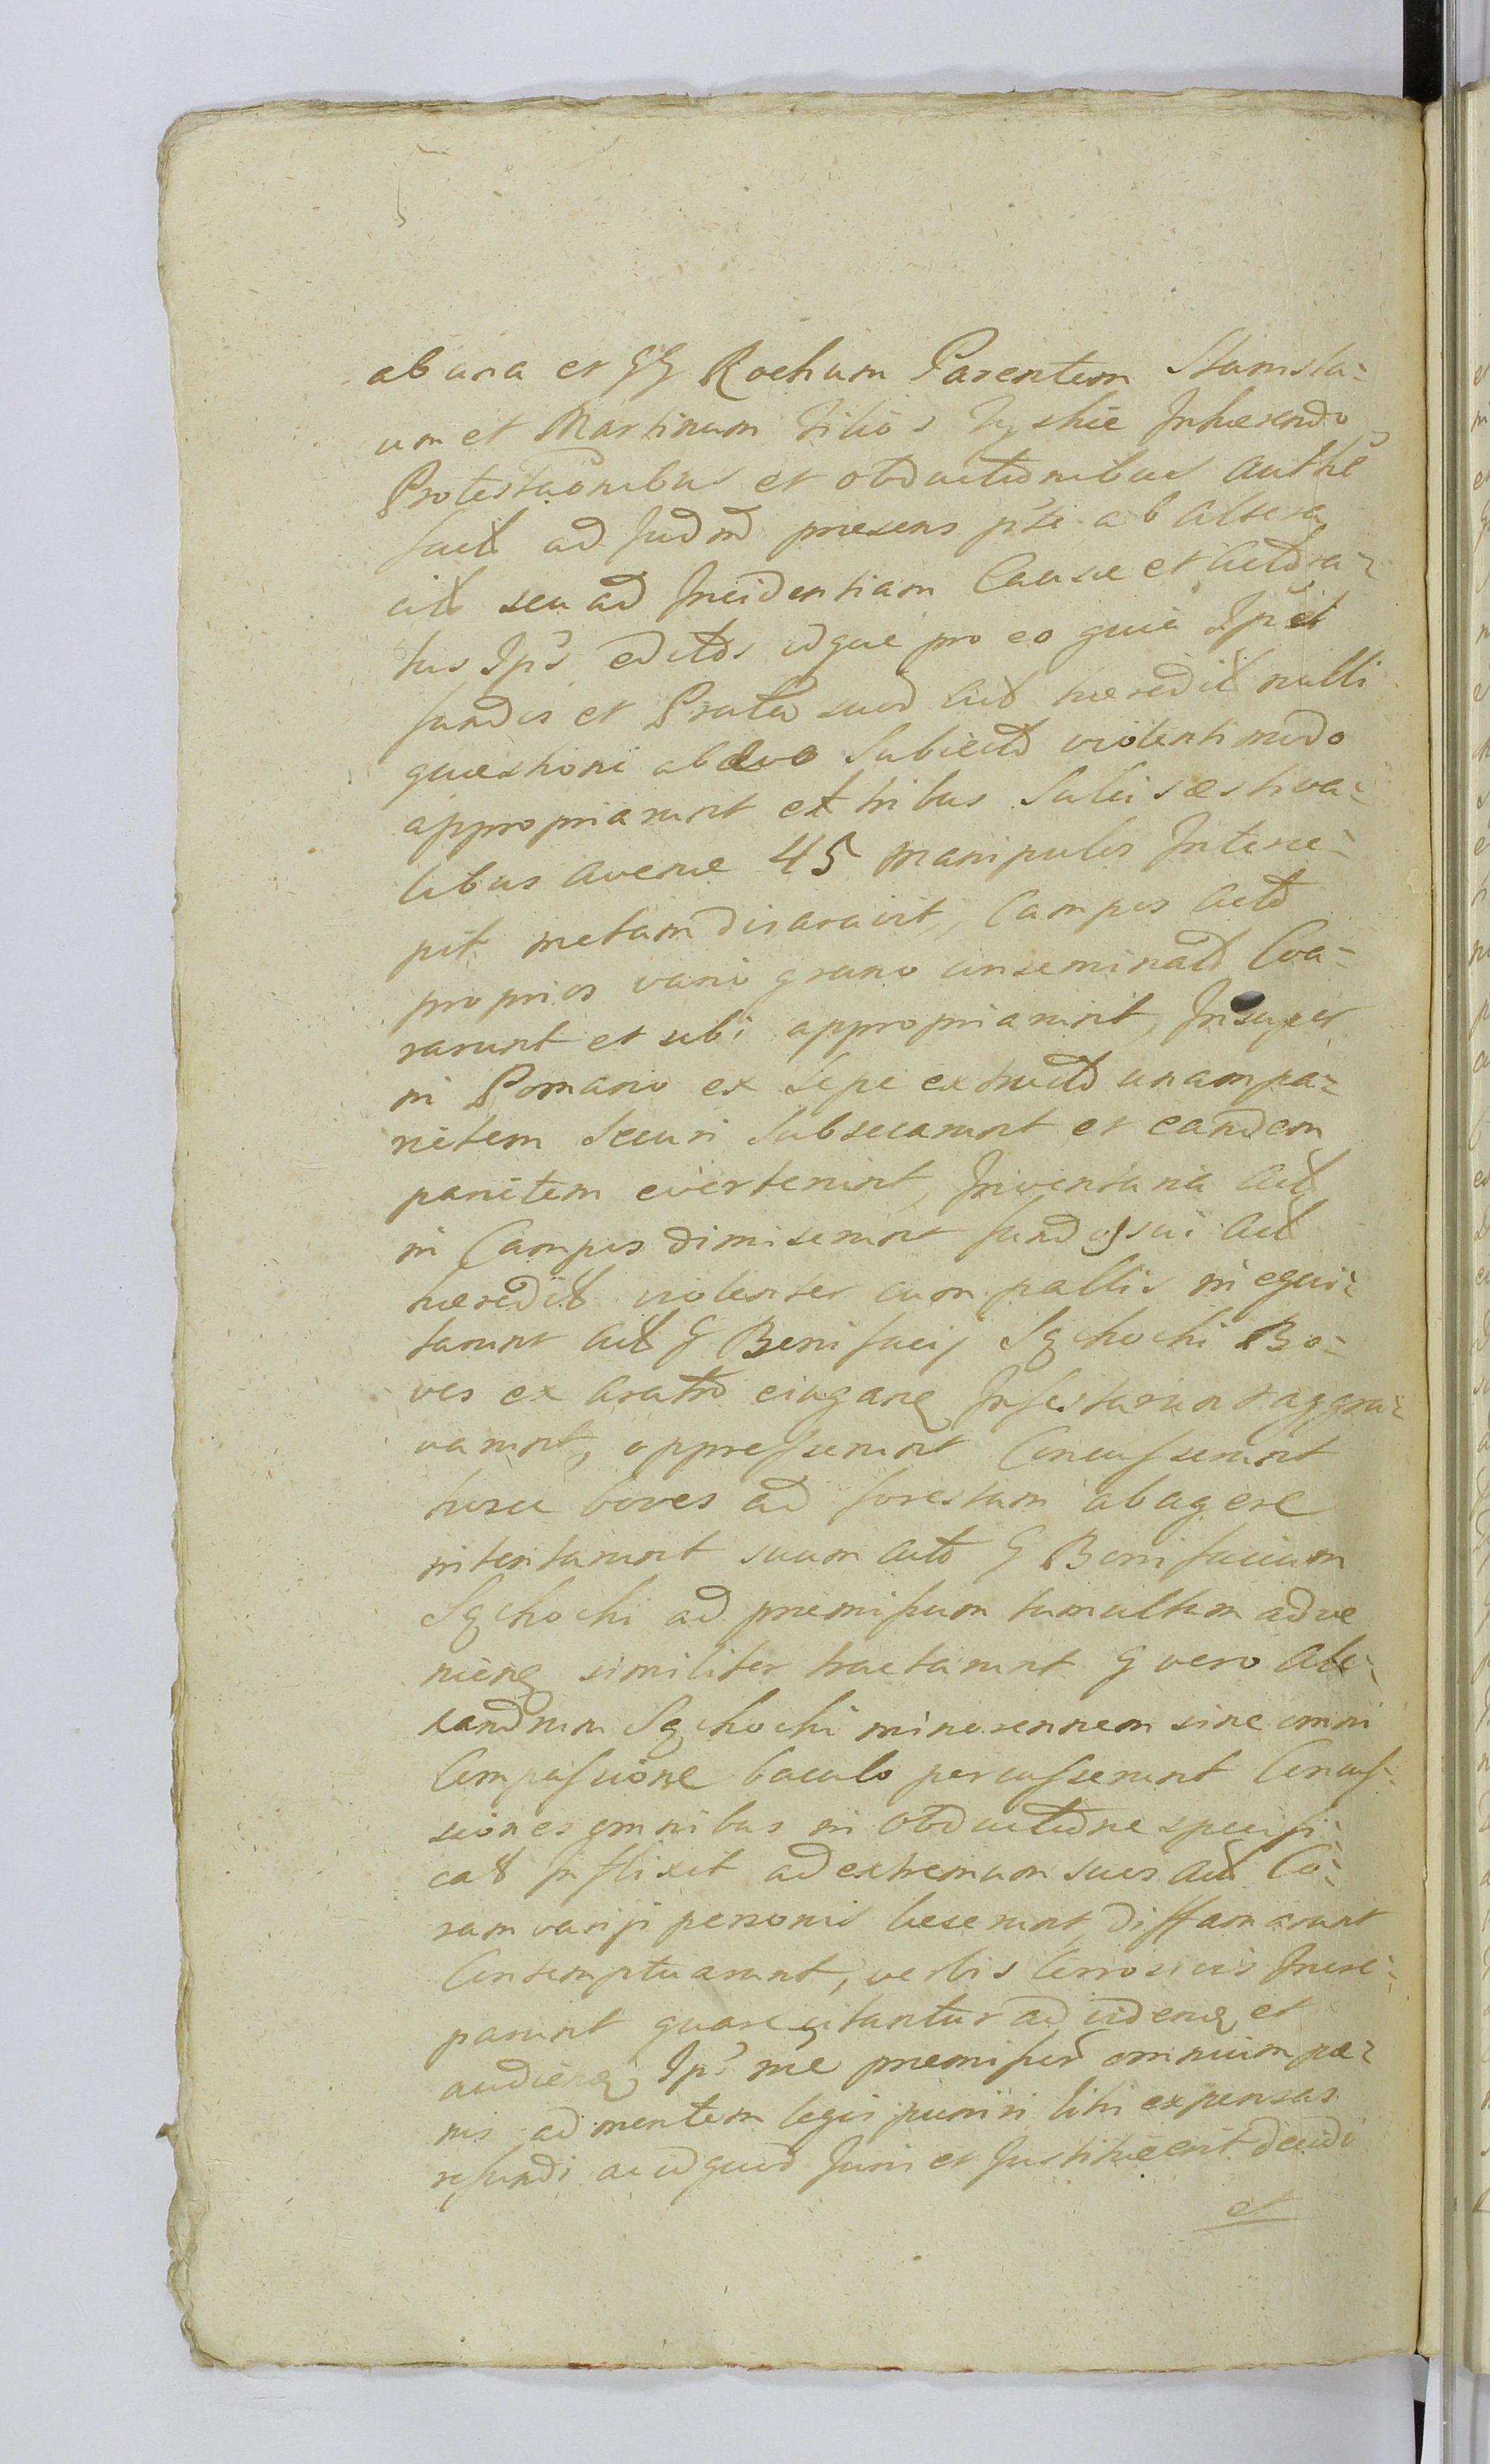 ab una et GG Rochum Parentem Stanisla-
um et Martinum Filios Tyskie Inhærendo
Protestaõnibus et obductionibus authẽ
fact ad Judm præsens pte ab Altera
citt seu ad Incidentiam Causæ et Actora-
tus Ips editos idque pro eo quia Ipsi
fundis et Prata suor Act hæredit nulli
quæstioni ab ævo Subiecta violenti modo
appropriarunt et tribus Sulcis æstiva-
libus avenæ 45 manipulos Interce-
pit metam disaravit, Campos Acto
proprios vario grano inseminato Coa-
rarunt et sibi appropriarunt, Insuper
in Pomario ex Sepe extructo unam pa-
rietem Securi Subsecarunt et eandem
parietem everterunt, Inventaria Act
in Campos dimiserunt fundos sui Act
hæredit violenter cum pallis inequi-
tarunt Act G Bonifacij Sqchocki Bo-
ves ex Aratro eiugare Infestarunt aggra-
varunt, oppresserunt Concusserunt
hosce boves ad forestam abagere
intentarunt suum Acto G Bonifacium
Sqchocki ad præmissum tumultum adve
niens similiter tractarunt G vero Ale-
xandrum Sqchocki minorennem sine omni
Compassione baculo percusserunt Concus-
siones omnibus in obductione specifi-
cat inflixit ad extremum suos Act Co-
ram varijs personis læserunt, diffamarunt
Contemptuarunt, verbis Corrosivis Incre-
parunt quare citantur ad viden et
audien Ips me præmissor omnium pæ-
nis ad mentem legis puniri litis expensas
refundi ac id quod Juris et Justitiæ erit decidi
et